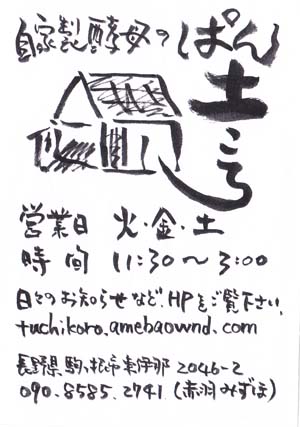 自家製酵母のぱん
土ころ
営業日 火・金・土
時間 11:30〜3:00
日々のお知らせなど、HPをご覧下さい。
tuchikoro.amebaownd.com
長野県駒ヶ根市東伊那 2046-2
090.8585.2741 (赤羽みずほ)